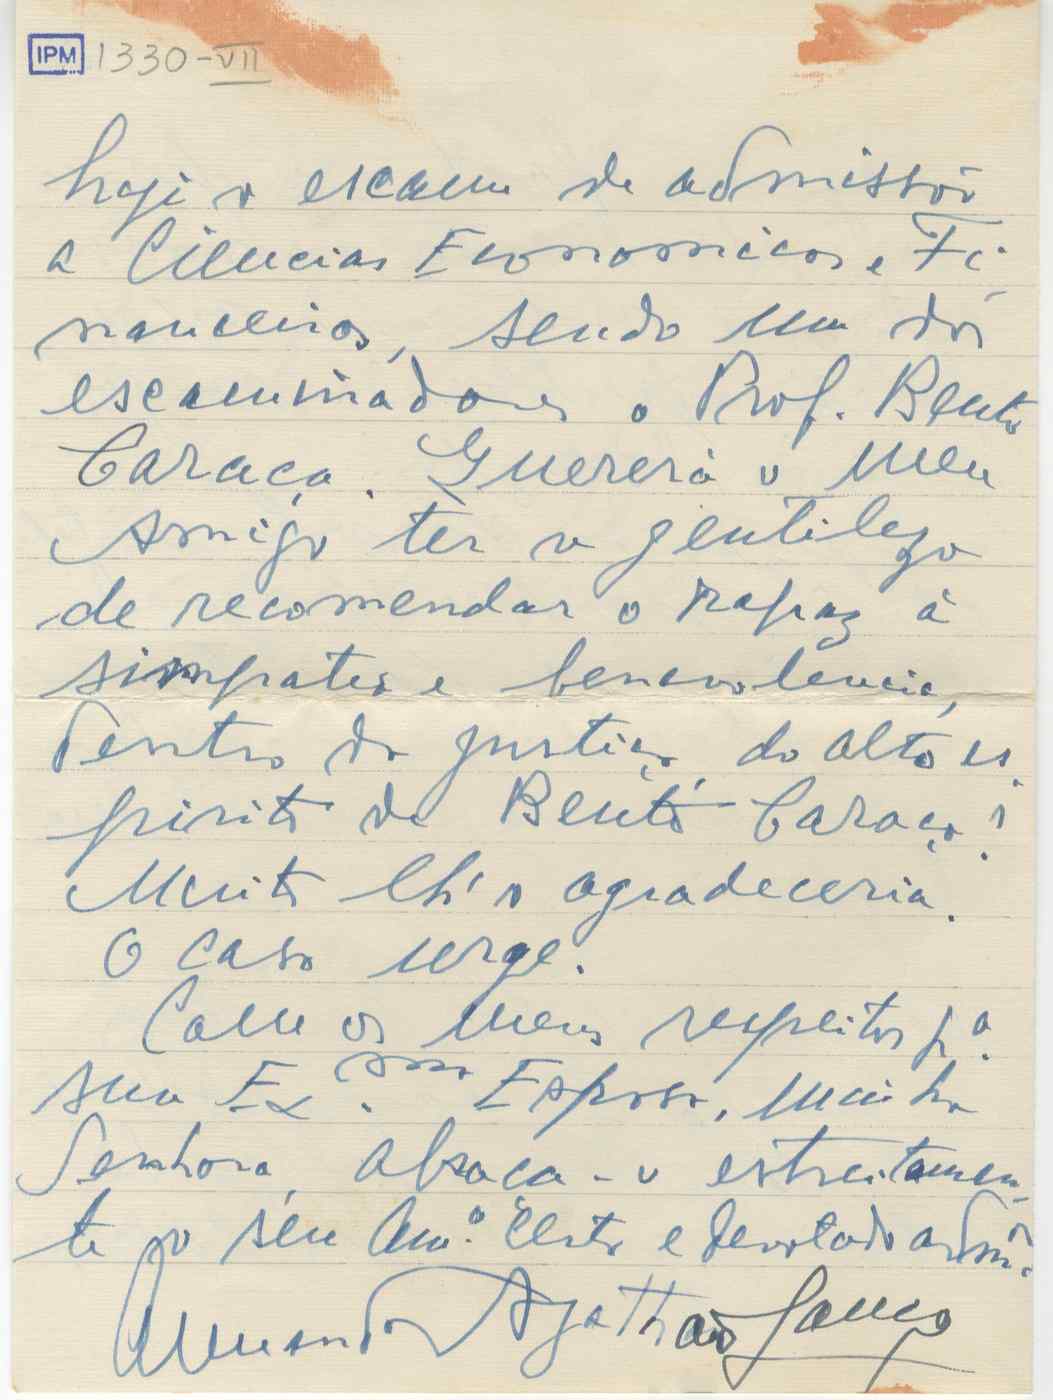 IPM 1330-VII
hoje o escame de admissão
a Ciencias Economicas e Fi-
nanceiras, sendo um dos
escaminadores o Prof. Bento
Caraça. Quererá o meu
Amigo ter a gentileza
de recomendar o rapaz á
simpatia e benevolencia,
dentro da justiça, do alto es-
pirito de Bento Caraça?
Muito lh'o agradeceria.
O caso urge.
Com os meus respeitos pª.
sua Exma. Esposa, minha
Senhora, abraça-o estreitamen-
te o seu Amº. certo e devotado adm.
Armando Agathão Lança